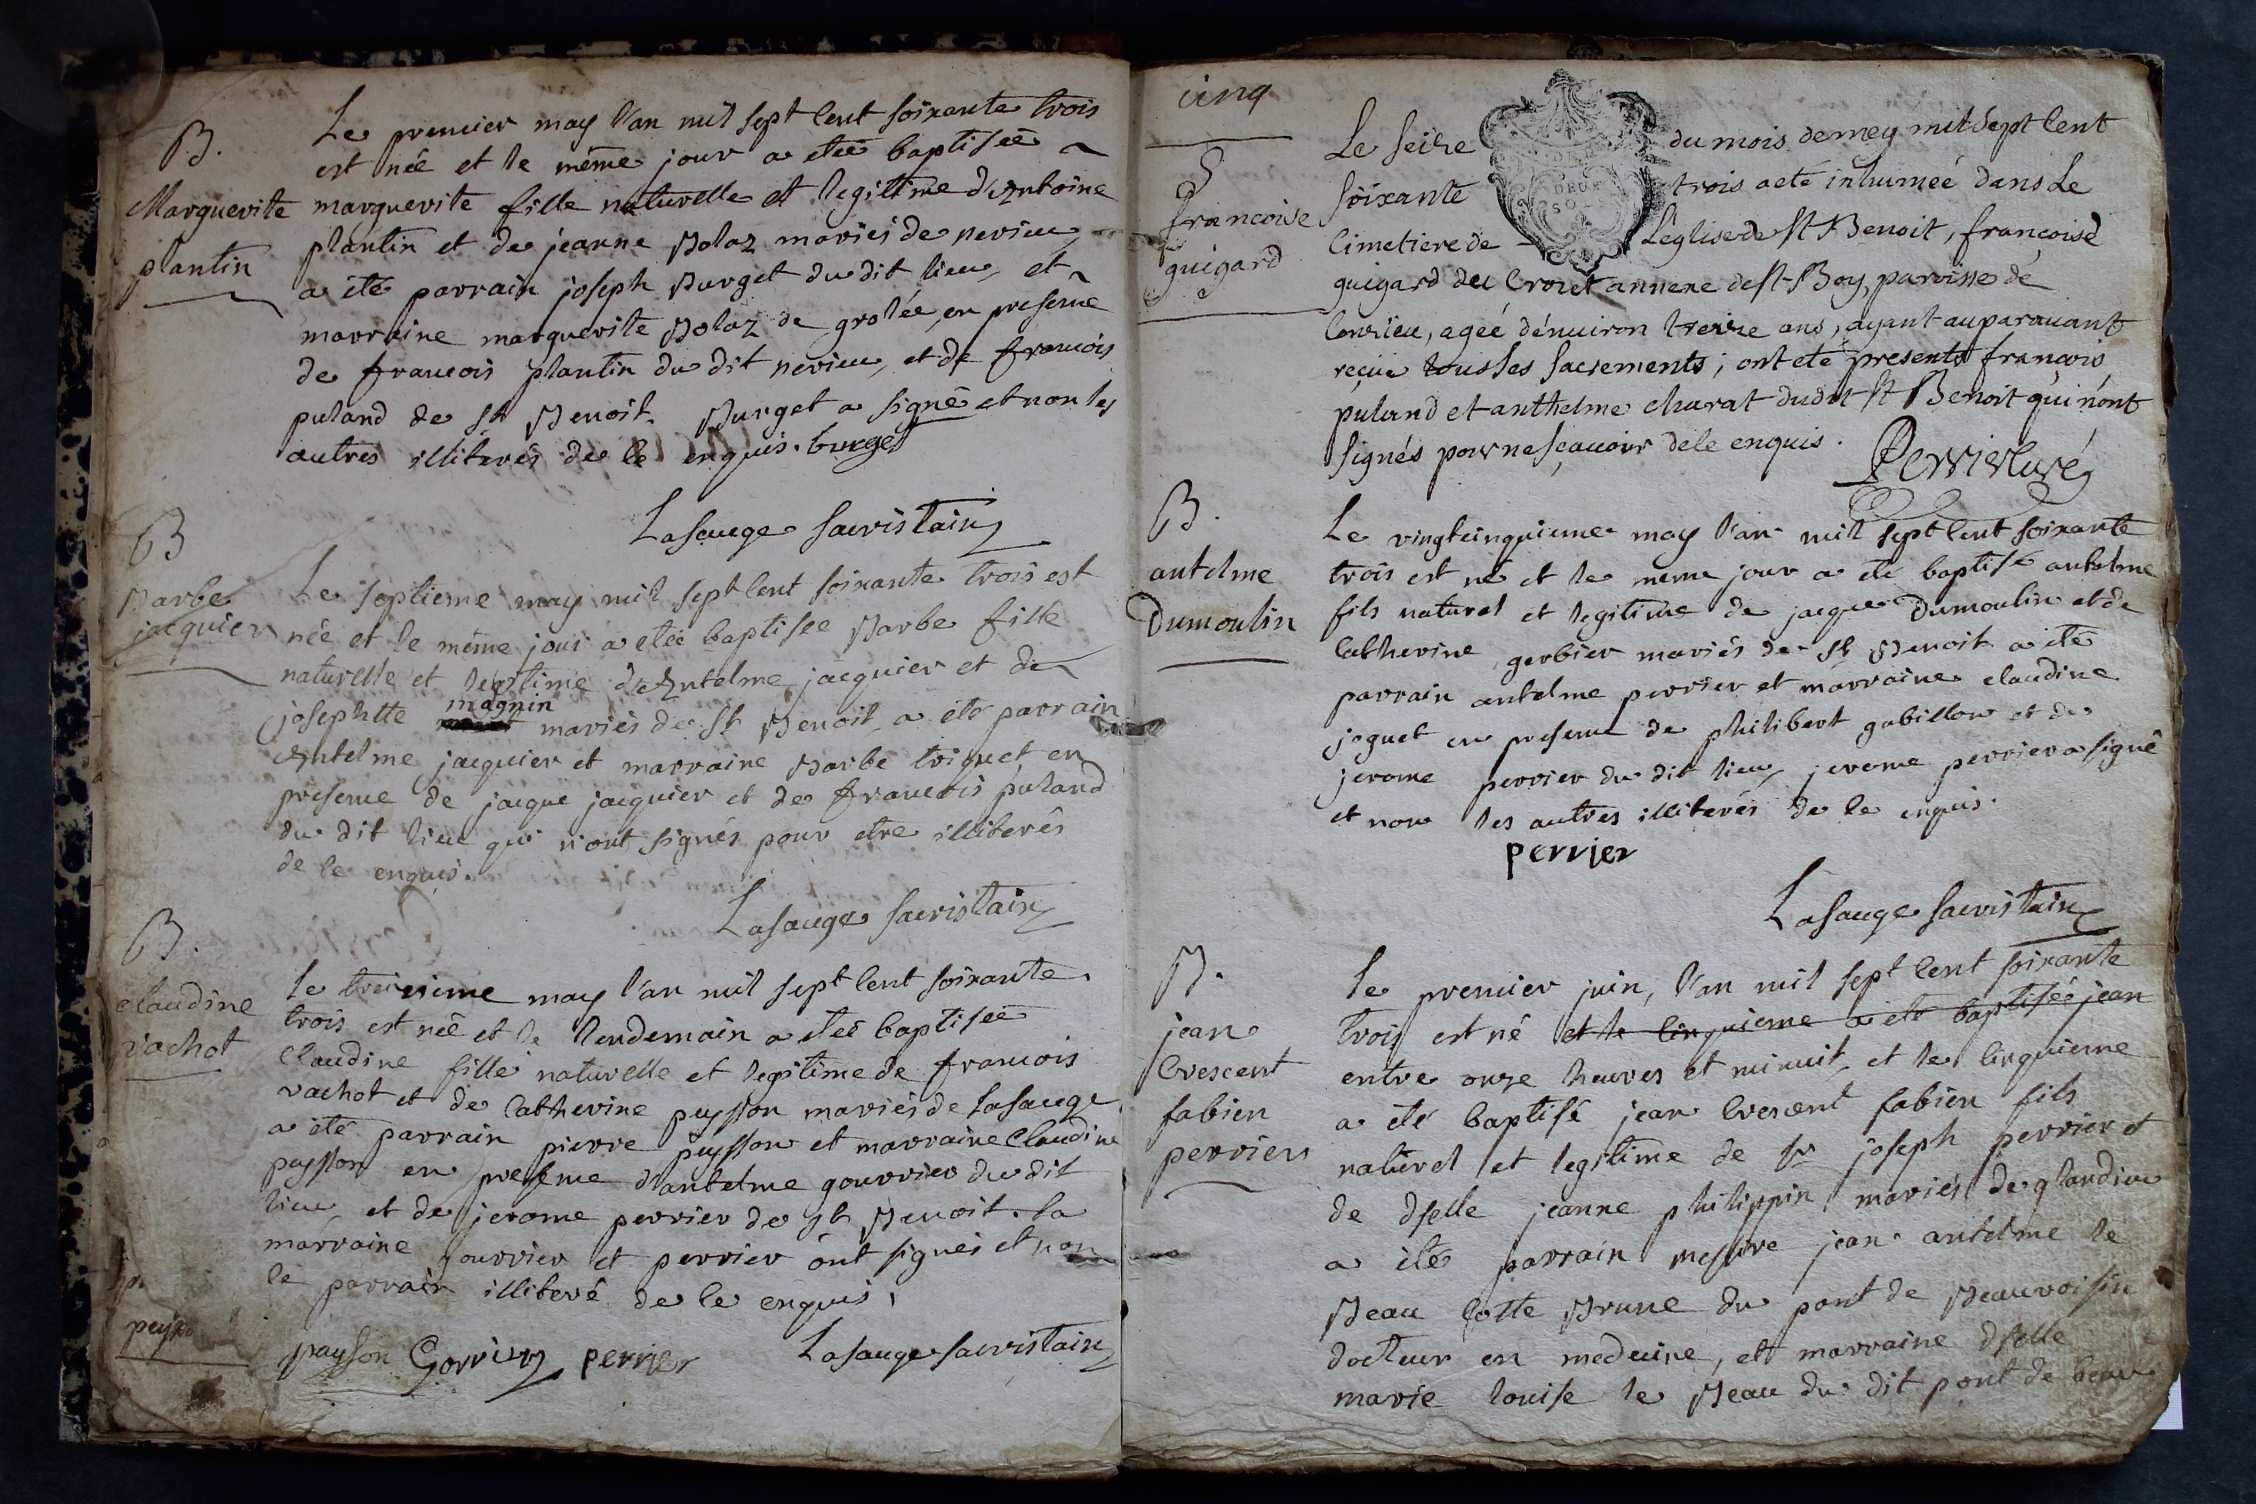 B.
Marguerite
plantin
Le premier may l'an mil sept cent soixante trois
est née et le même jour a etée baptisée
marguerite fille naturelle et legitime d'Antoine
plantin et de jeanne Bolaz mariés de nerieu
a été parrain joseph Burget du dit lieu, et
marraine marguerite Bolaz de grolée, en presence
de francois plantin du dit nerieu, et de francois
puland de St Benoit. Burget a signé et non les
autres illiterés de ce enquis. burget
Lasauge sacristain
B
Barbe
jacquier
Le septieme may mil sept cent soixante trois est
née et le même jour a etée baptisee Barbe fille
naturelle et legitime d'Antelme jacquier et de
josephtte magnin mariés de St Benoit, a été parrain
Antelme jacquier et marraine Barbe triquet en
presence de jacque jacquier et de francois puland
du dit lieu qui n'ont signés pour etre illiterés
de ce enquis.
Lasauge sacristain
B.
claudine
vachot
le treizieme may l'an mil sept cent soixante
trois est née et le lendemain a etée baptisée
Claudine fille naturelle et legitime de francois
vachot et de Catherine peysson mariés de Lasauge
a été parrain pierre peysson et marraine Claudine
peysson en presence d'antelme gourrier du dit
lieu et de jerome perrier de St Benoit. La
marraine gourrier et perrier ont signés et non
le parrain illiteré de ce enquis,
paysson Gorrier perrier Lasauge sacristain
cinq
S
francoise
guigard
Le seize du mois de mey mil sept cent
soixante trois a eté inhumeé dans Le
Cimetiere de L'eglise de St Benoit, francoise
guigard du Crozet annexe de St Boy, paroisse de
Conzieu, ageé d'enuiron treize ans, ayant auparauant
reçüe tous les sacrements; ont eté presents francois
puland et anthelme charat dudit St Benoit qui n'ont
signés pour ne sçauoir de ce enquis.
Perrier curé
B.
antelme
Dumoulin
Le vingtcinquieme may l'an mil sept cent soixante
trois est né et le meme jour a eté baptisé antelme
fils naturel et legitime de jacque Dumoulin et de
Catherine gerbier mariés de St Benoit a été
parrain antelme perrier et marraine claudine
joguet en presence de philibert gabillon et de
jerome perrier du dit lieu, jerome perrier a signé
et non les autres illiterés de ce enquis.
perrier
Lasauge sacristain
B.
jean
Crescent
fabien
perrier
le premier juin, l'an mil sept cent soixante
trois est né et le cinquieme a eté baptisée jean
entre onze heures et minuit, et le cinquieme
a eté baptisé jean Crescent fabien fils
naturel et legitime de Sr joseph perrier et
de dselle jeanne philippin mariés de glandieu
a été parrain messire jean antelme le
Beau Cotte Brune du pont de Beauvoisin
docteur en medecine, et marraine dselle
marie louise le Beau du dit pont de beau